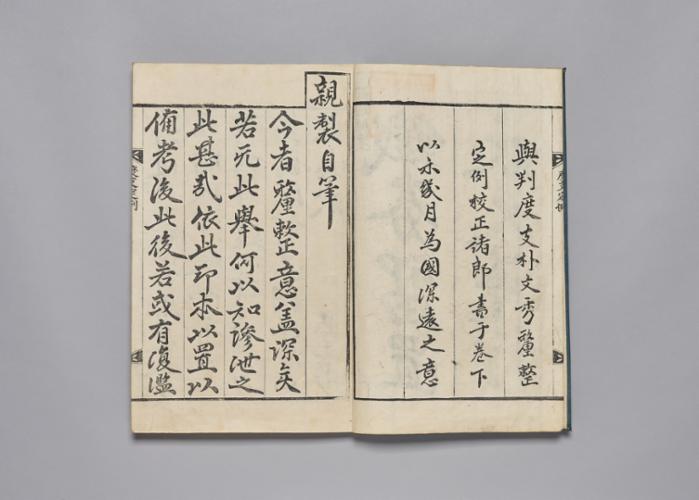 度支定例
與判度支朴文秀釐整
定例校正諸郎書于卷下
以示 月為國深遠之意
親製自筆
今者釐整意盖深矣
若无此舉何以知滲泄之
此甚哉依此印本以置以
備考後此後若或有復濫
度支定例